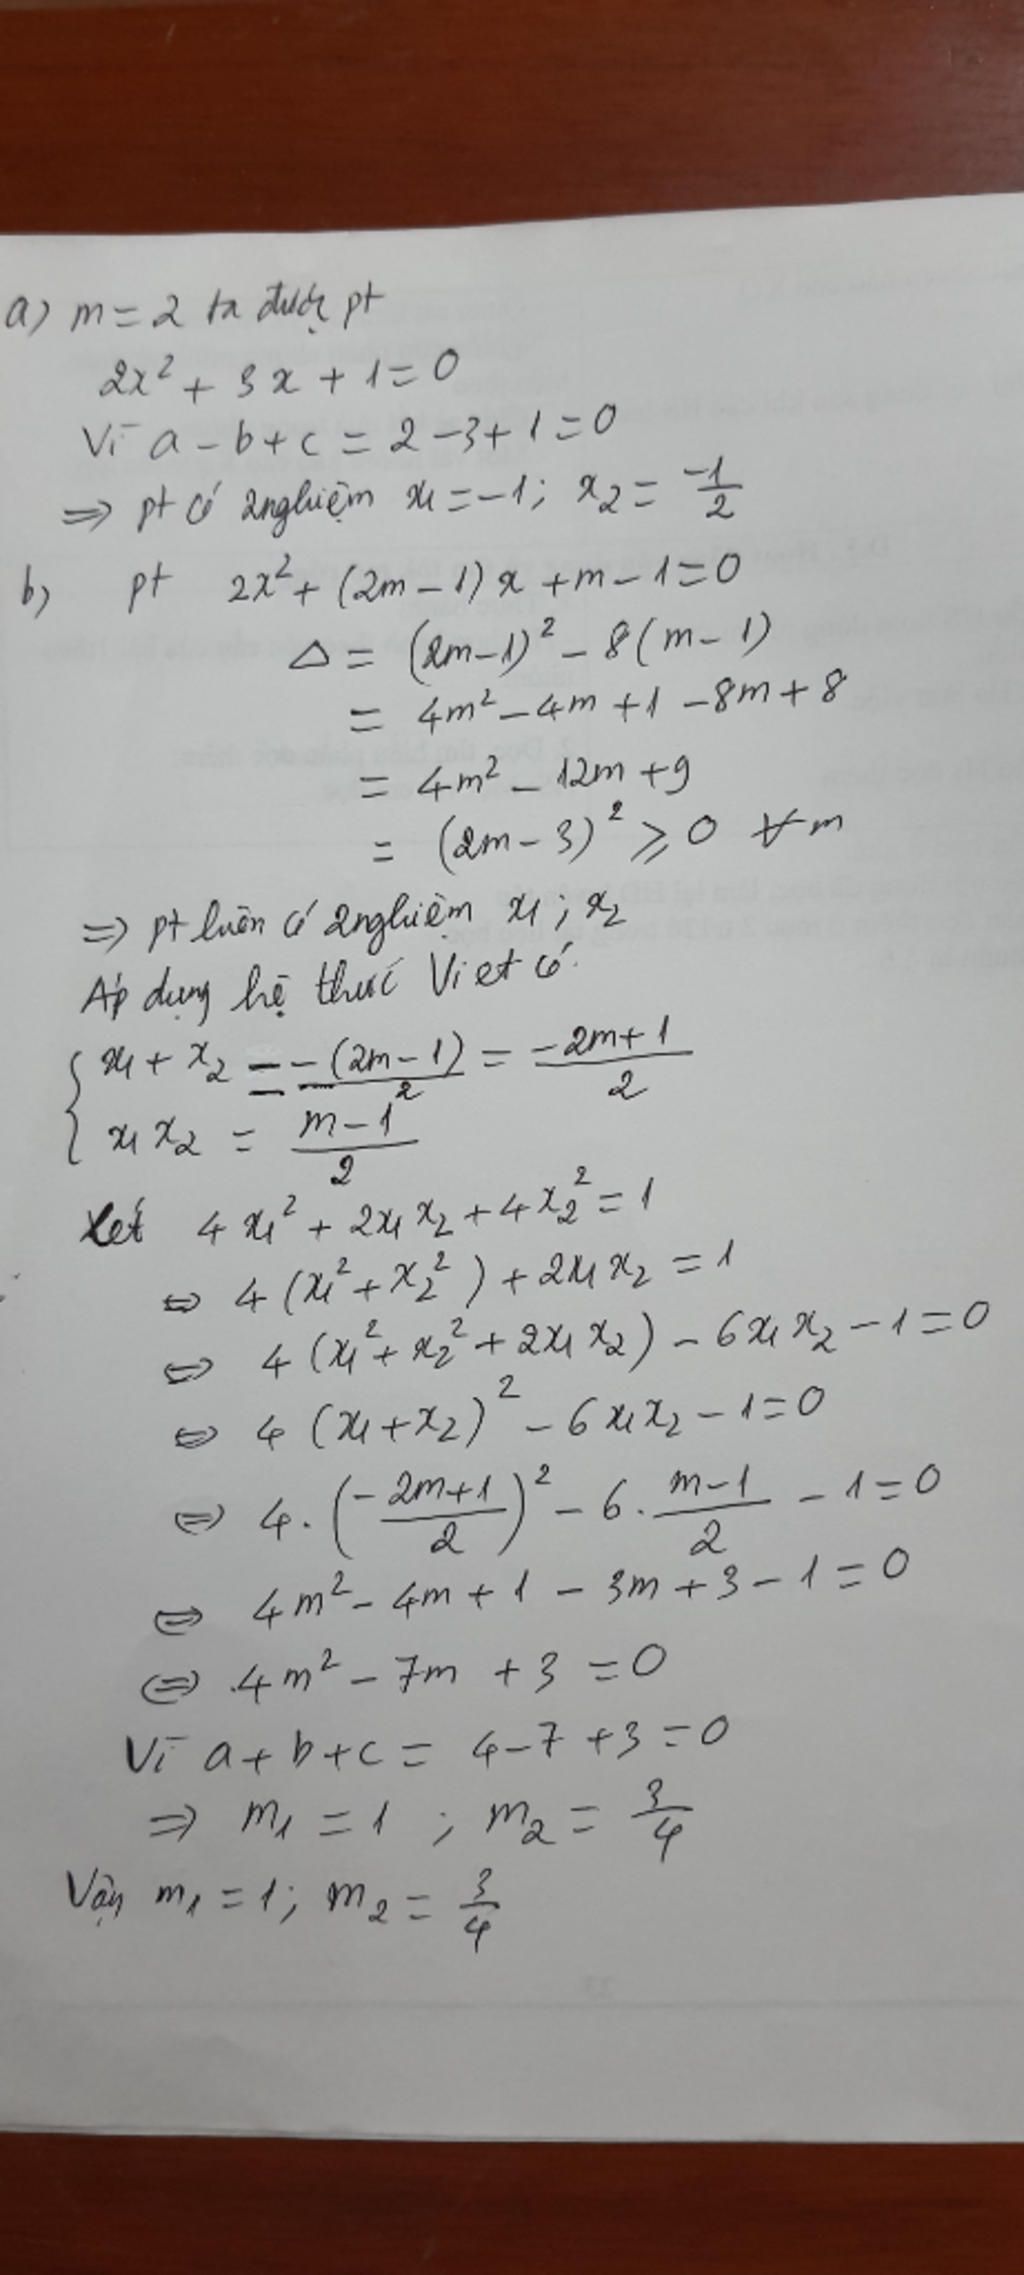 a) m = 2 ta được pt
2x² + 3x + 1 = 0
Vì a - b + c = 2 - 3 + 1 = 0
⇒ pt có 2 nghiệm x₁ = -1; x₂ = -1/2
b) pt 2x² + (2m - 1)x + m - 1 = 0
Δ = (2m - 1)² - 8(m - 1)
= 4m² - 4m + 1 - 8m + 8
= 4m² - 12m + 9
= (2m - 3)² ⩾ 0 ∀m
⇒ pt luôn có 2 nghiệm x₁; x₂
Áp dụng hệ thức Viet có
{ x₁ + x₂ = -(2m - 1)/2 = (-2m + 1)/2
x₁x₂ = (m - 1)/2
Xét 4x₁² + 2x₁x₂ + 4x₂² = 1
⇔ 4(x₁² + x₂²) + 2x₁x₂ = 1
⇔ 4(x₁² + x₂² + 2x₁x₂) - 6x₁x₂ - 1 = 0
⇔ 4(x₁ + x₂)² - 6x₁x₂ - 1 = 0
⇔ 4.((-2m + 1)/2)² - 6.(m - 1)/2 - 1 = 0
⇔ 4m² - 4m + 1 - 3m + 3 - 1 = 0
⇔ 4m² - 7m + 3 = 0
Vì a + b + c = 4 - 7 + 3 = 0
⇒ m₁ = 1; m₂ = 3/4
Vậy m₁ = 1; m₂ = 3/4